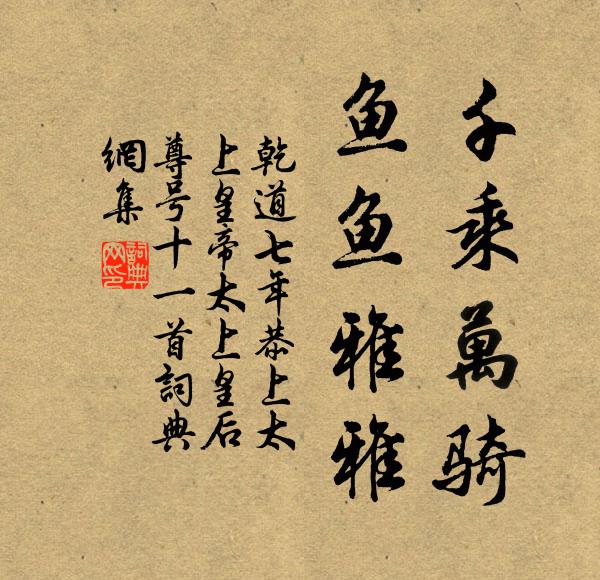 千乘萬骑
鱼鱼雅雅
乾道七年恭上太
上皇帝太上皇后
尊号十一首詞典
網集
詞典網印